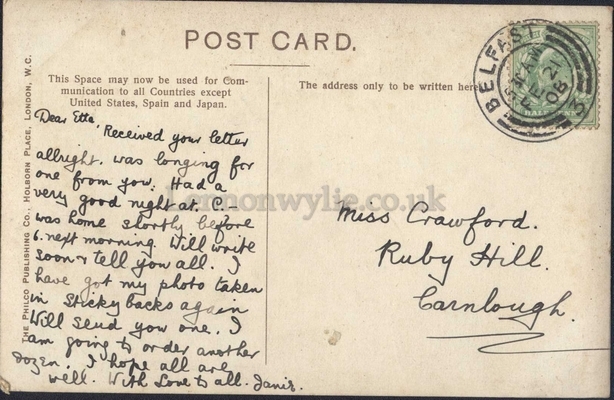 POST CARD.
This Space may now be used for Com-
munication to all Countries except
United States, Spain and Japan.
The address only to be written here
THE PHILCO PUBLISHING CO., HOLBORN PLACE, LONDON, W.C.
BELFAST
DE 21
08
3
HALFPENNY
Dear Etta,
Received your letter
allright. was longing for
one from you. Had a
very good night at. C—
was home shortly before
6. next morning. Will write
soon & tell you all. I
have got my photo taken
in Stickybacks again
Will send you one. I
am going to order another
dozen. I hope all are
well. With Love to all. Janie.
Miss Crawford.
Ruby Hill.
Carnlough.
lennonwylie.co.uk